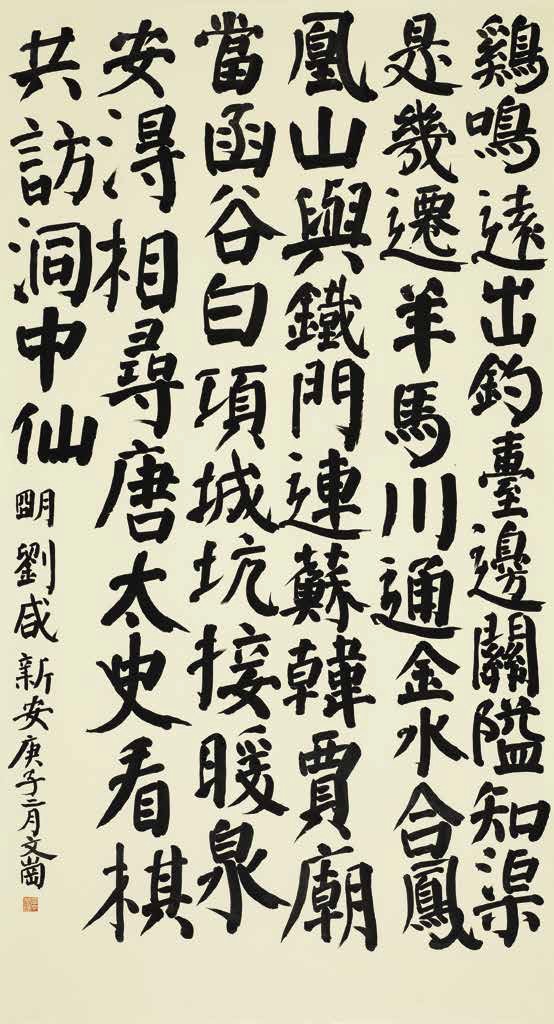 鷄鳴遠出釣臺邊關隘知渠
是幾遷羊馬川通金水合鳳
凰山與鐵門連蘇韓賈廟
當函谷白項城坑接暖泉
安得相尋唐太史看棋
共訪洞中仙
明劉咸新安庚子二月文崗